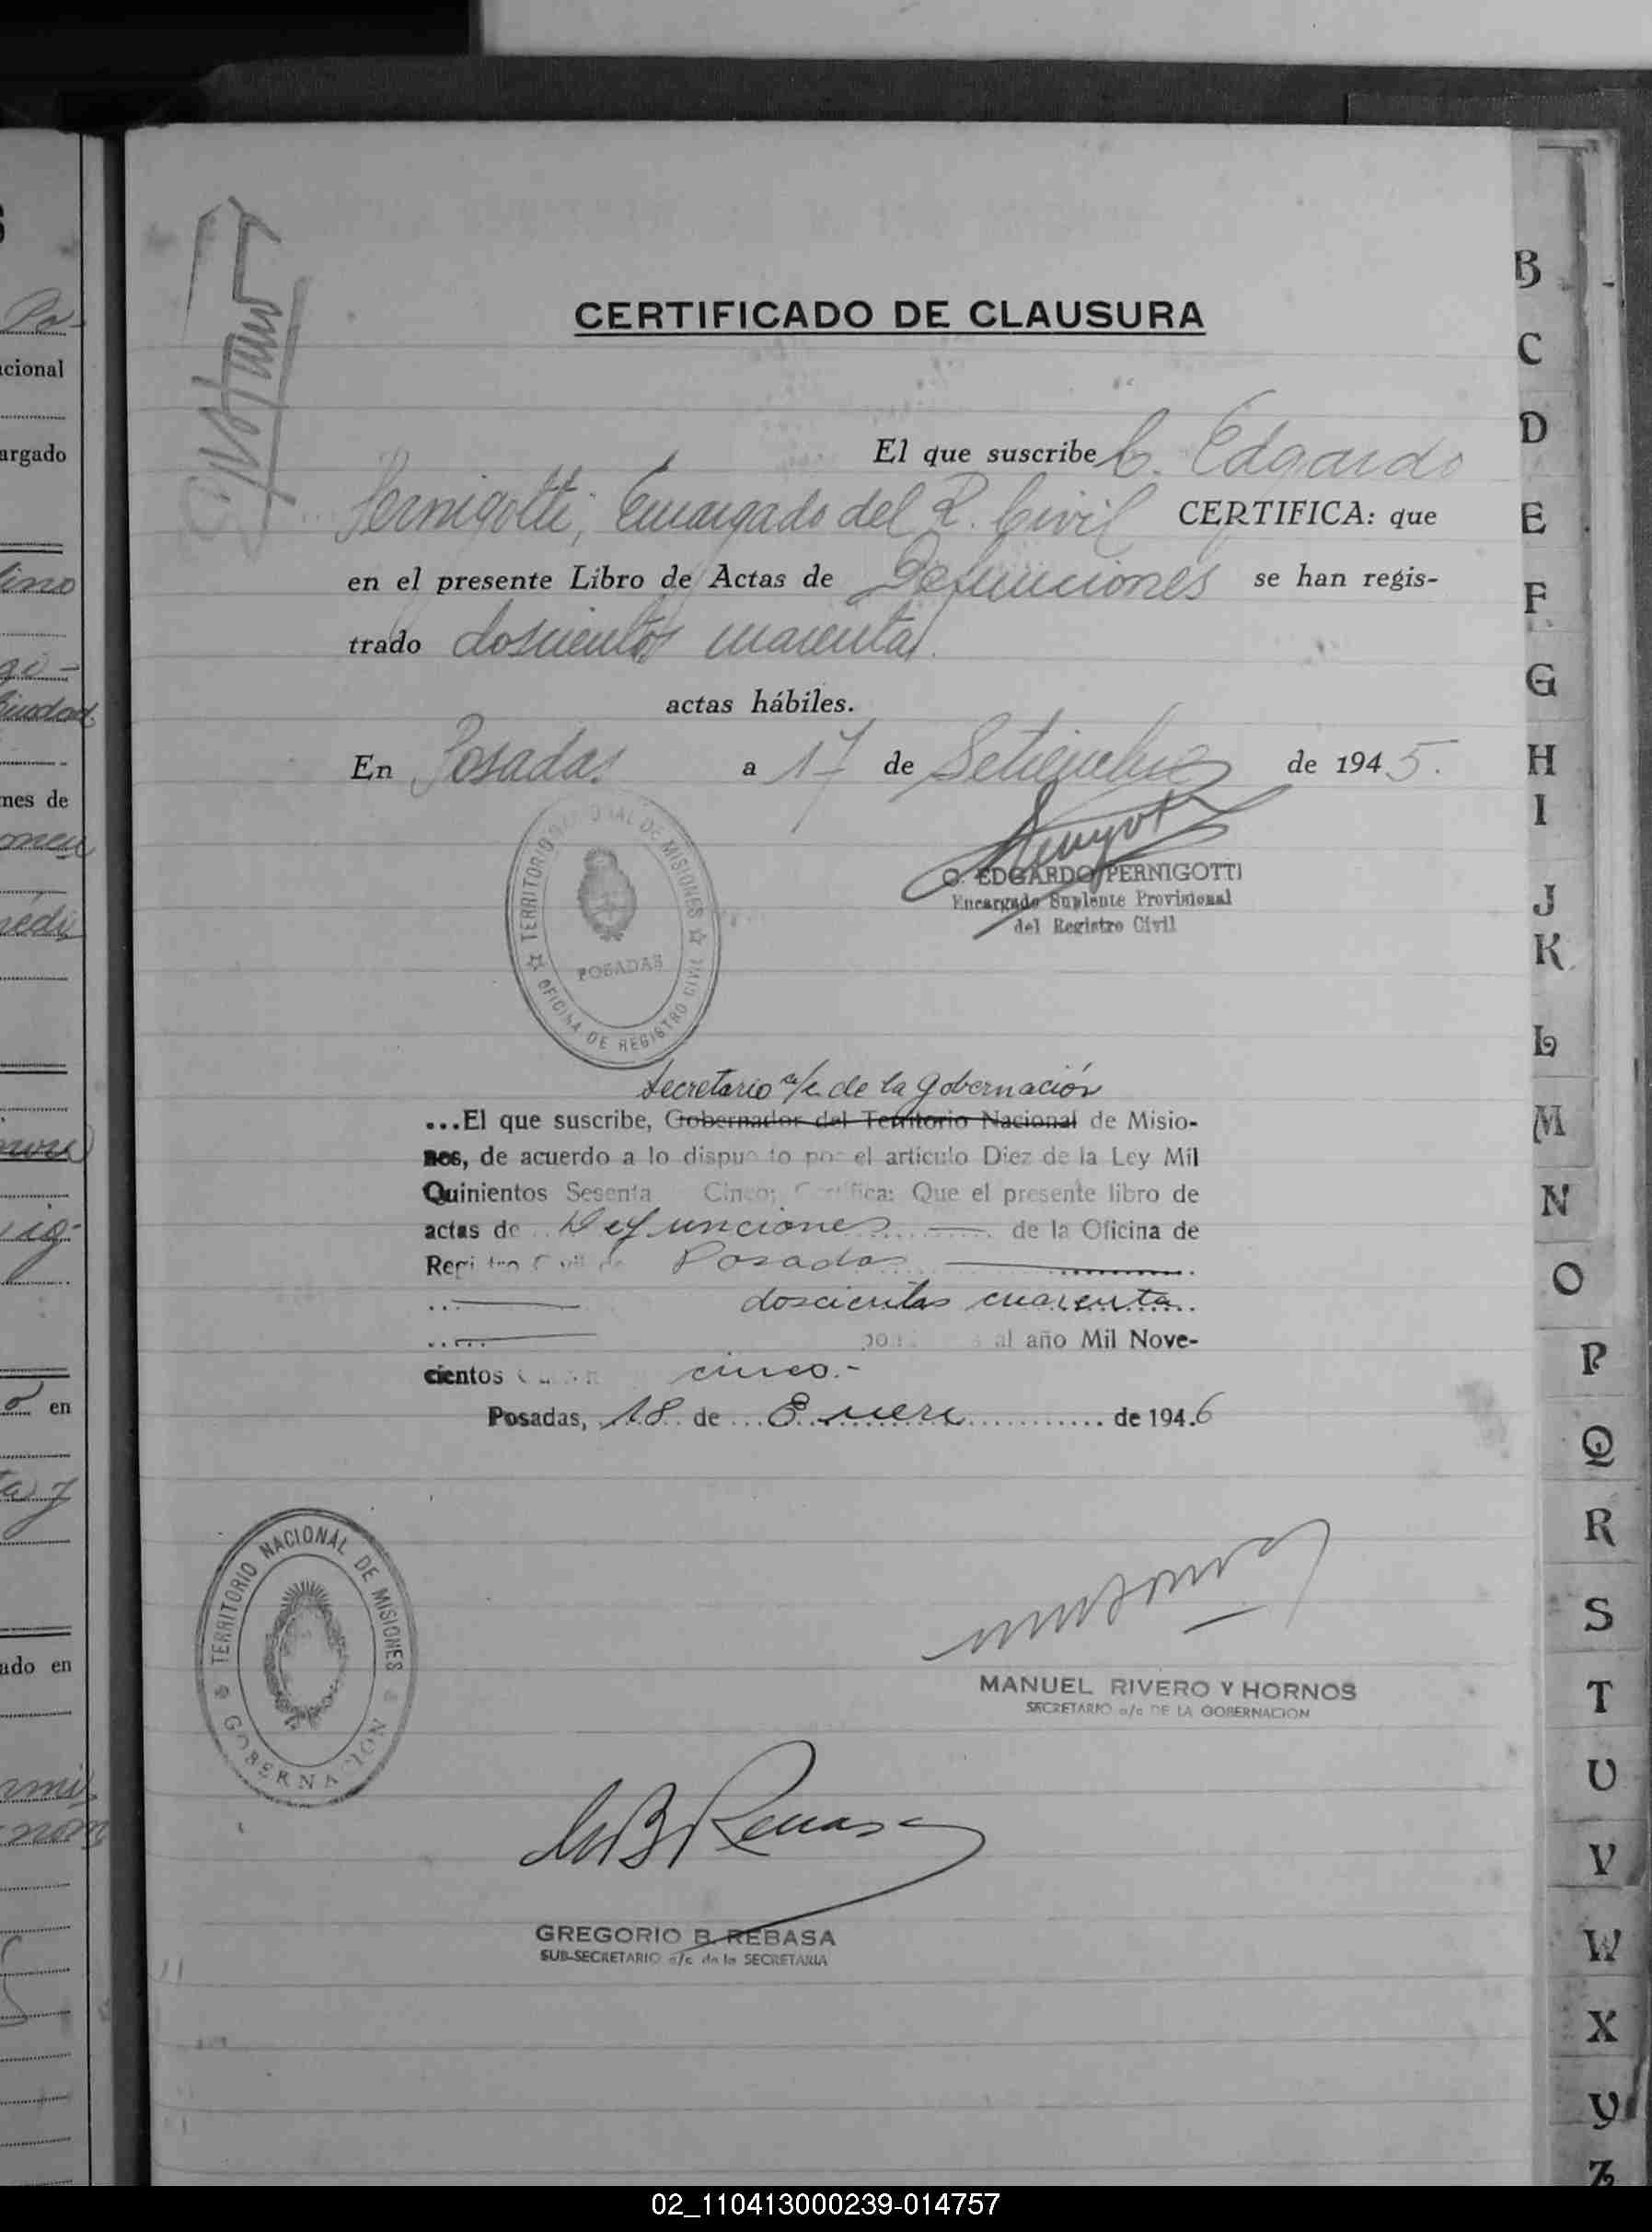 CERTIFICADO DE CLAUSURA
El que suscribe C. Edgardo
Pernigotti, Encargado del R. Civil CERTIFICA: que
en el presente Libro de Actas de Defunciones se han regis-
trado doscientos cuarenta
actas hábiles.
En Posadas a 17 de Setiembre de 1945.
TERRITORIO NACIONAL DE MISIONES
POSADAS
OFICINA DE REGISTRO CIVIL
C. EDGARDO PERNIGOTTI
Encargado Suplente Provisional
del Registro Civil
Secretario a/c de la Gobernación
...El que suscribe, Gobernador del Territorio Nacional de Misio-
nes, de acuerdo a lo dispuesto por el artículo Diez de la Ley Mil
Quinientos Sesenta Cinco; Certifica: Que el presente libro de
actas de Defunciones de la Oficina de
Registro Civil de Posadas
doscientas cuarenta
al año Mil Nove-
cientos cinco.-
Posadas, 18 de Enero de 1946
TERRITORIO NACIONAL DE MISIONES
GOBERNACION
MANUEL RIVERO Y HORNOS
SECRETARIO a/c DE LA GOBERNACION
GREGORIO B. REBASA
SUB-SECRETARIO a/c de la SECRETARIA
B
C
D
E
F
G
H
I
J
K
L
M
N
O
P
Q
R
S
T
U
V
W
X
Y
Z
cional
argado
nes de
en
ado en
02_110413000239-014757